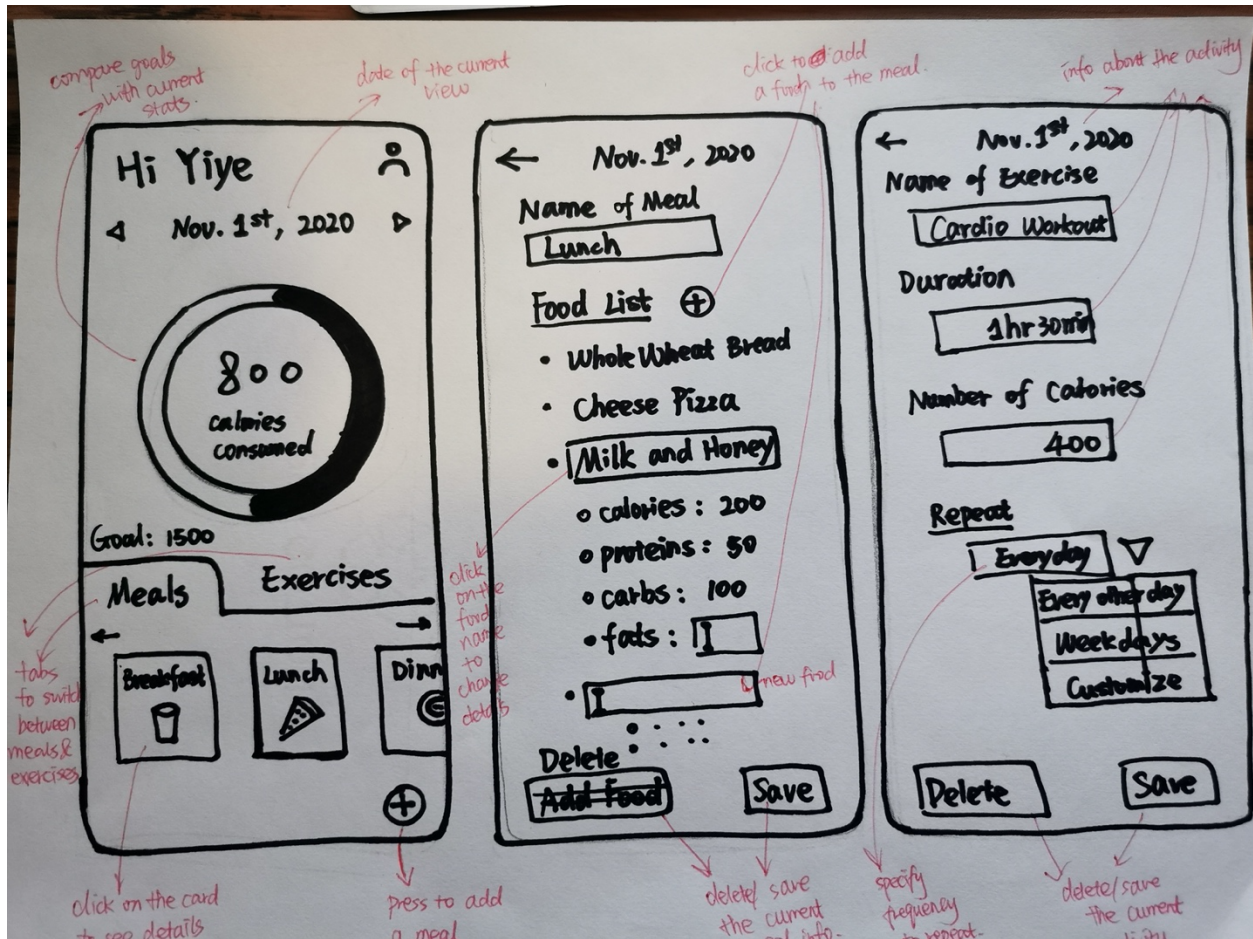 compare goals
with current
stats.
date of the current
view
click to add
a food to the meal.
info about the activity
Hi Yiye
Nov. 1st, 2020
800
calories
consumed
Goal: 1500
Meals
Exercises
Breakfast
Lunch
Dinn
tabs
to switch
between
meals &
exercises
click on the card
to see details
press to add
a meal
Nov. 1st, 2020
Name of Meal
Lunch
Food List
• Whole Wheat Bread
• Cheese Pizza
• Milk and Honey
calories: 200
proteins: 50
carbs: 100
fats:
new food
click
on the
food
name
to
change
details
Delete
Add Food
Save
delete/save
the current
info.
Nov. 1st, 2020
Name of Exercise
Cardio Workout
Duration
1hr 30min
Number of Calories
400
Repeat
Everyday
Every other day
Weekdays
Customize
Delete
Save
specify
frequency
to repeat.
delete/save
the current